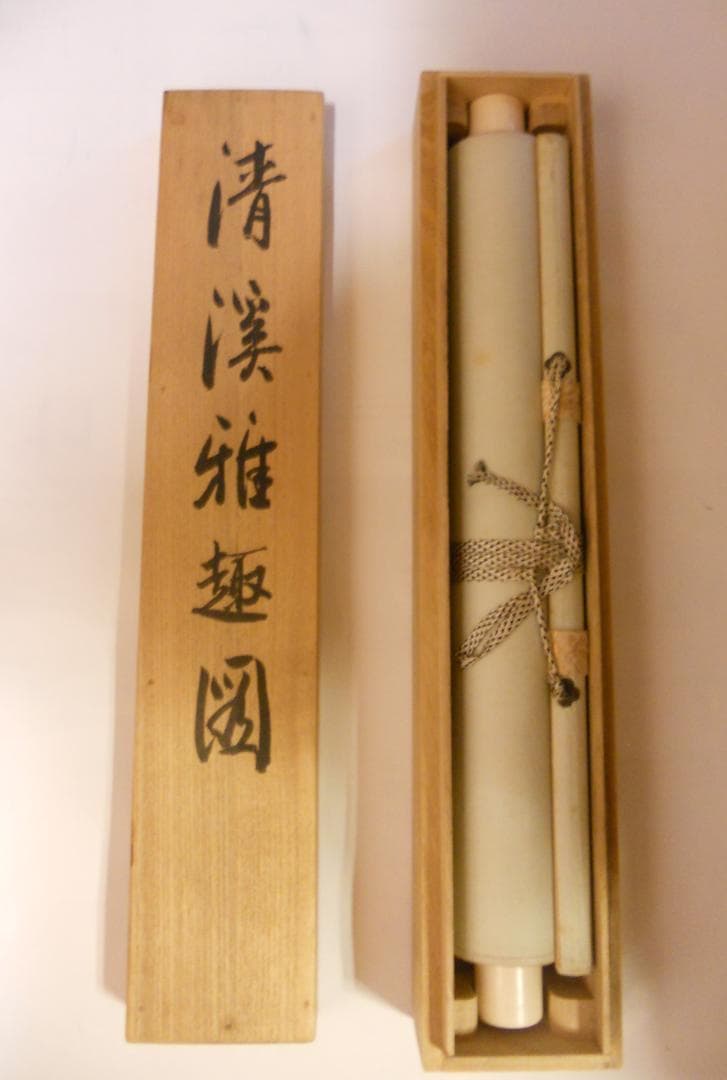 清溪雅趣図